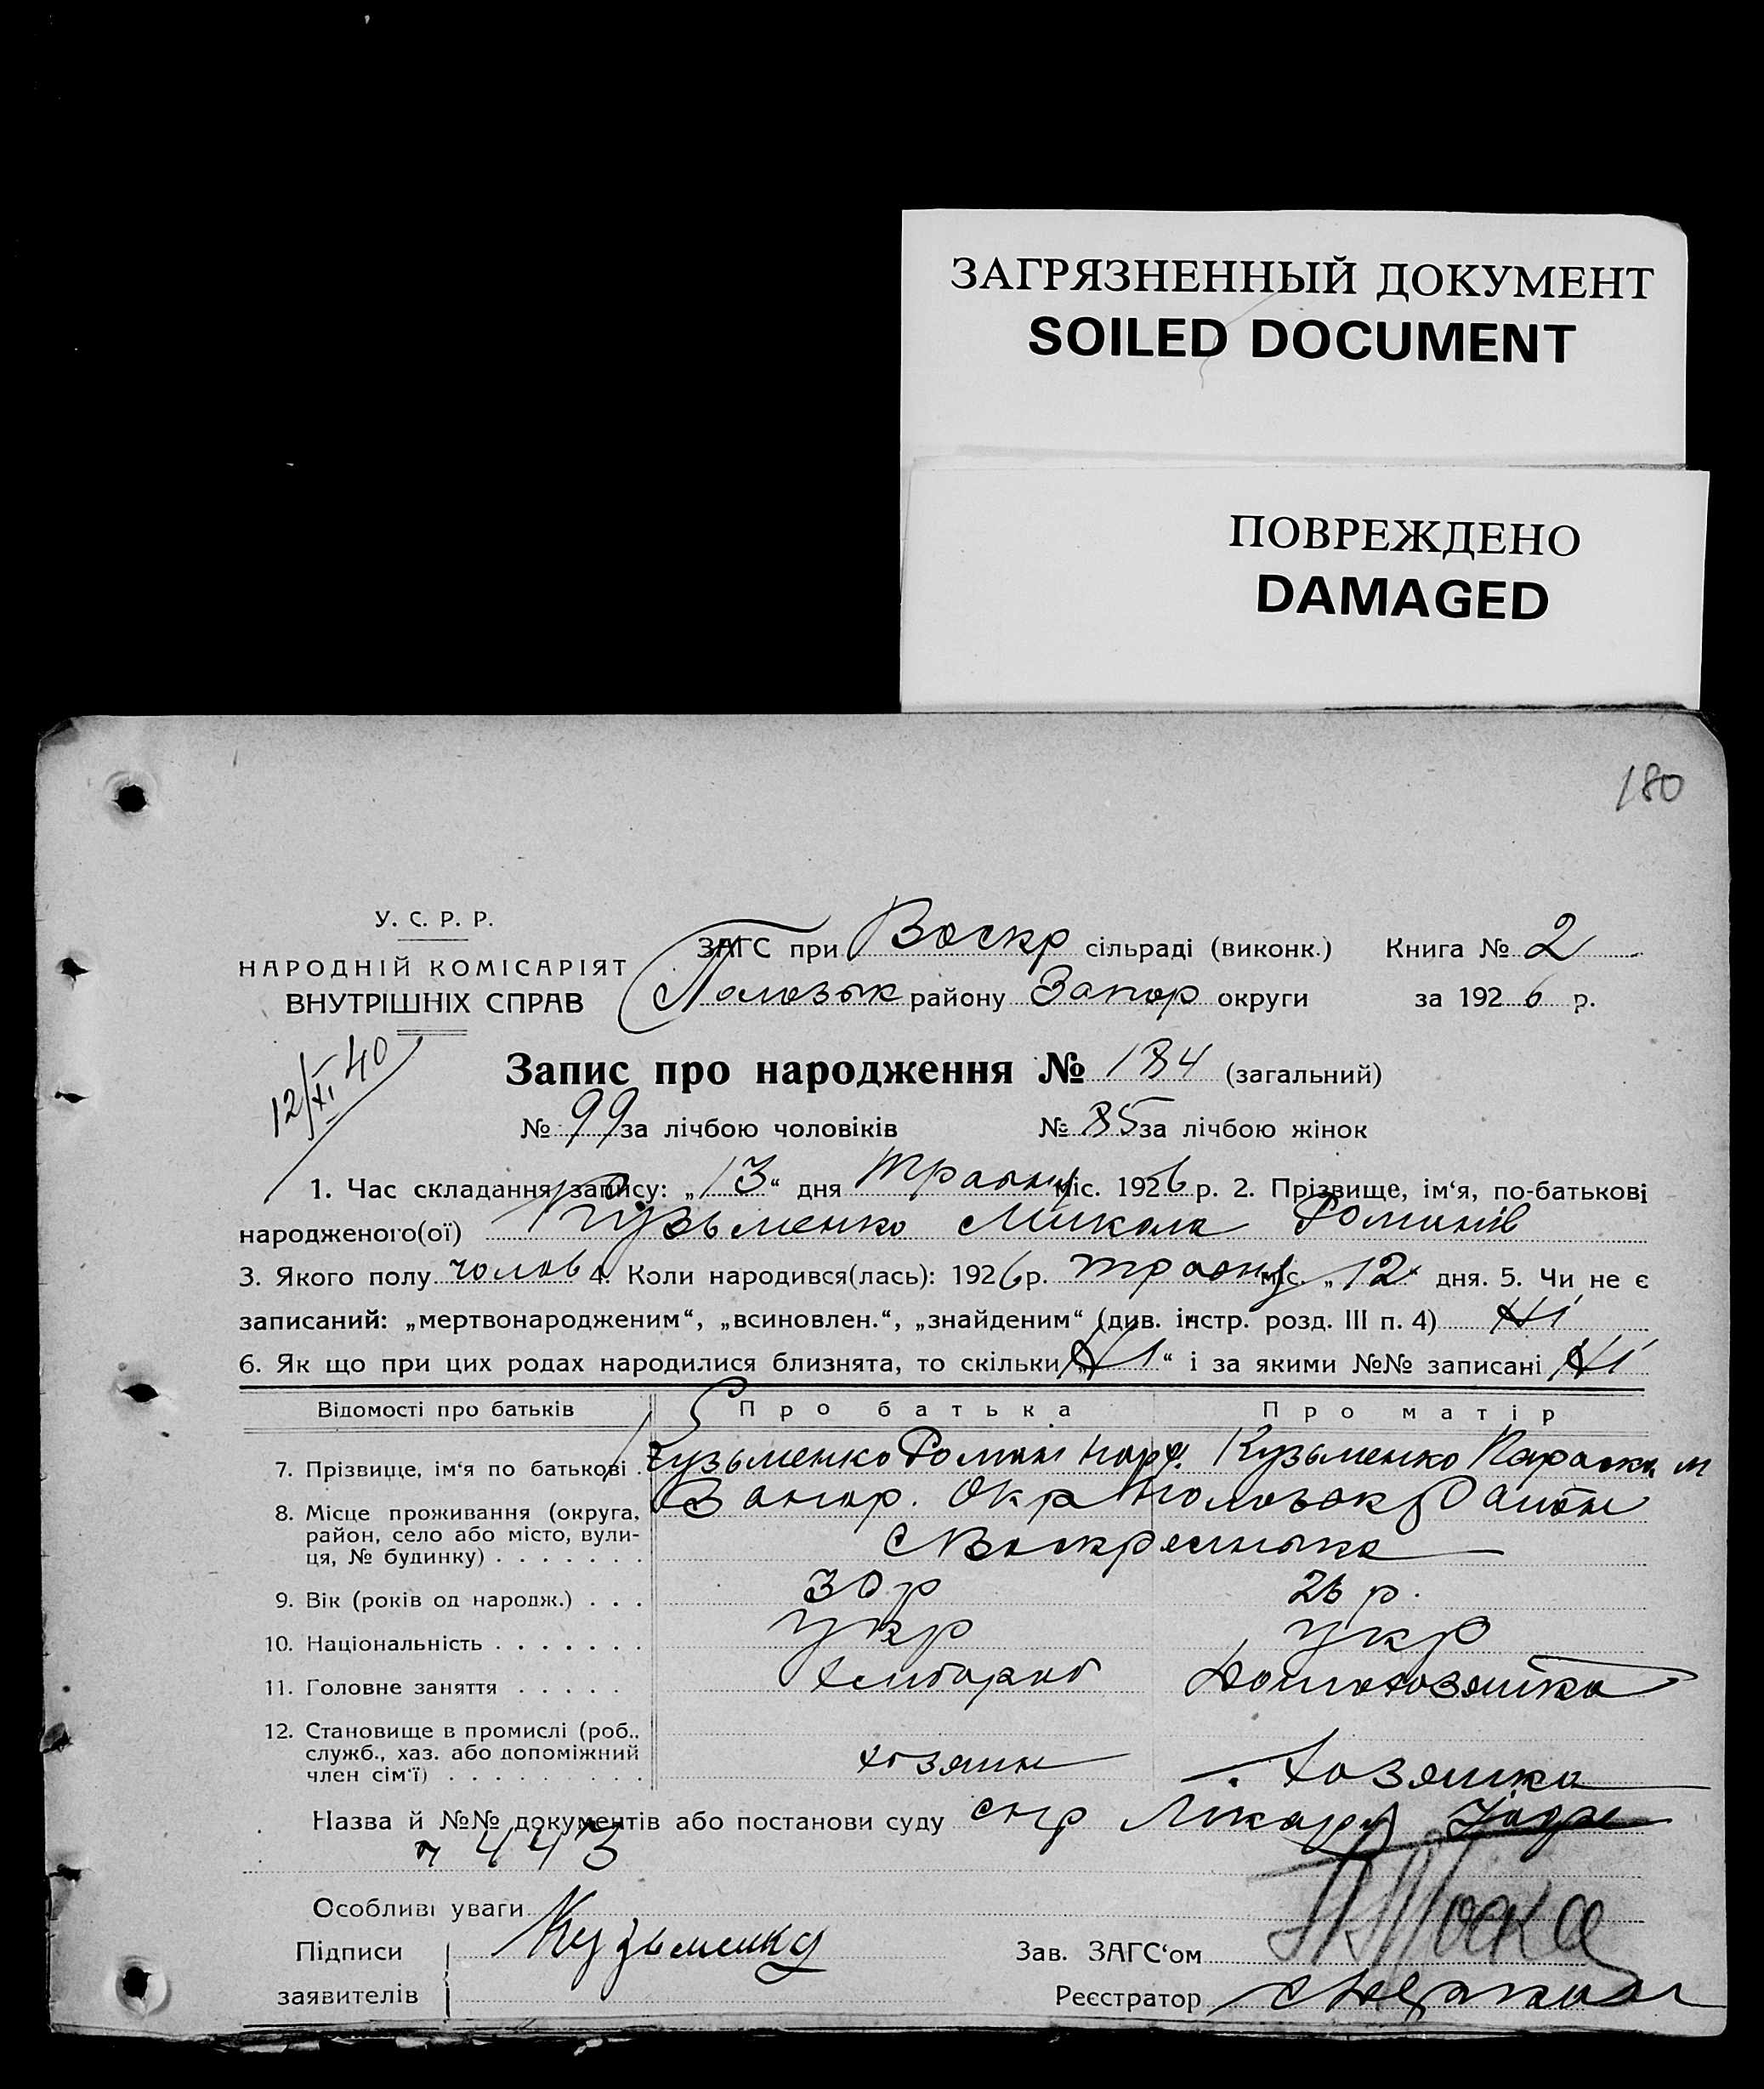 ЗАГРЯЗНЕННЫЙ ДОКУМЕНТ
SOILED DOCUMENT
ПОВРЕЖДЕНО
DAMAGED
180
У. С. Р. Р.
НАРОДНІЙ КОМІСАРІЯТ
ВНУТРІШНІХ СПРАВ
ЗАГС при Воскр сільраді (виконк.) Книга № 2
району Запор округи за 1926 р.
12/XI 40
Запис про народження № 184 (загальний)
№ 99 за лічбою чоловіків № 85 за лічбою жінок
1. Час складання запису: „13“ дня травня міс. 1926 р. 2. Прізвище, ім‘я, по-батькові
народженого(ої) Кузьменко Микола Романів
3. Якого полу чолов 4. Коли народився(лась): 1926 р. травня міс. „12“ дня. 5. Чи не є
записаний: „мертвонародженим“, „всиновлен.“, „знайденим“ (див. інстр. розд. III п. 4) Ні
6. Як що при цих родах народилися близнята, то скільки „Ні“ і за якими №№ записані Ні
Відомості про батьків Про батька Про матір
7. Прізвище, ім‘я по батькові Кузьменко Роман Кузьменко Параска
8. Місце проживання (округа, район, село або місто, вулиця, № будинку) Запор. Окр Район
с Воскресенка
9. Вік (років од народж.) 30 р 26 р.
10. Національність укр укр
11. Головне заняття хлібороб домохозяйка
12. Становище в промислі (роб., служб., хаз. або допоміжний член сім‘ї) хозяин хозяйка
Назва й №№ документів або постанови суду Лікаря
443
Особливі уваги
Підписи заявителів Кузьменко
Зав. ЗАГС‘ом
Реєстратор